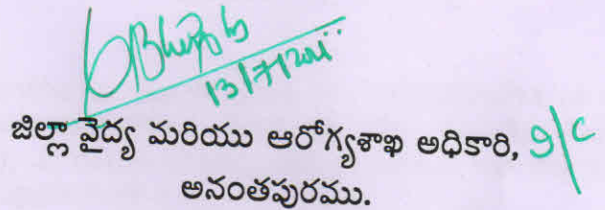 13/7/2011
జిల్లా వైద్య మరియు ఆరోగ్యశాఖ అధికారి, I/C
అనంతపురము.